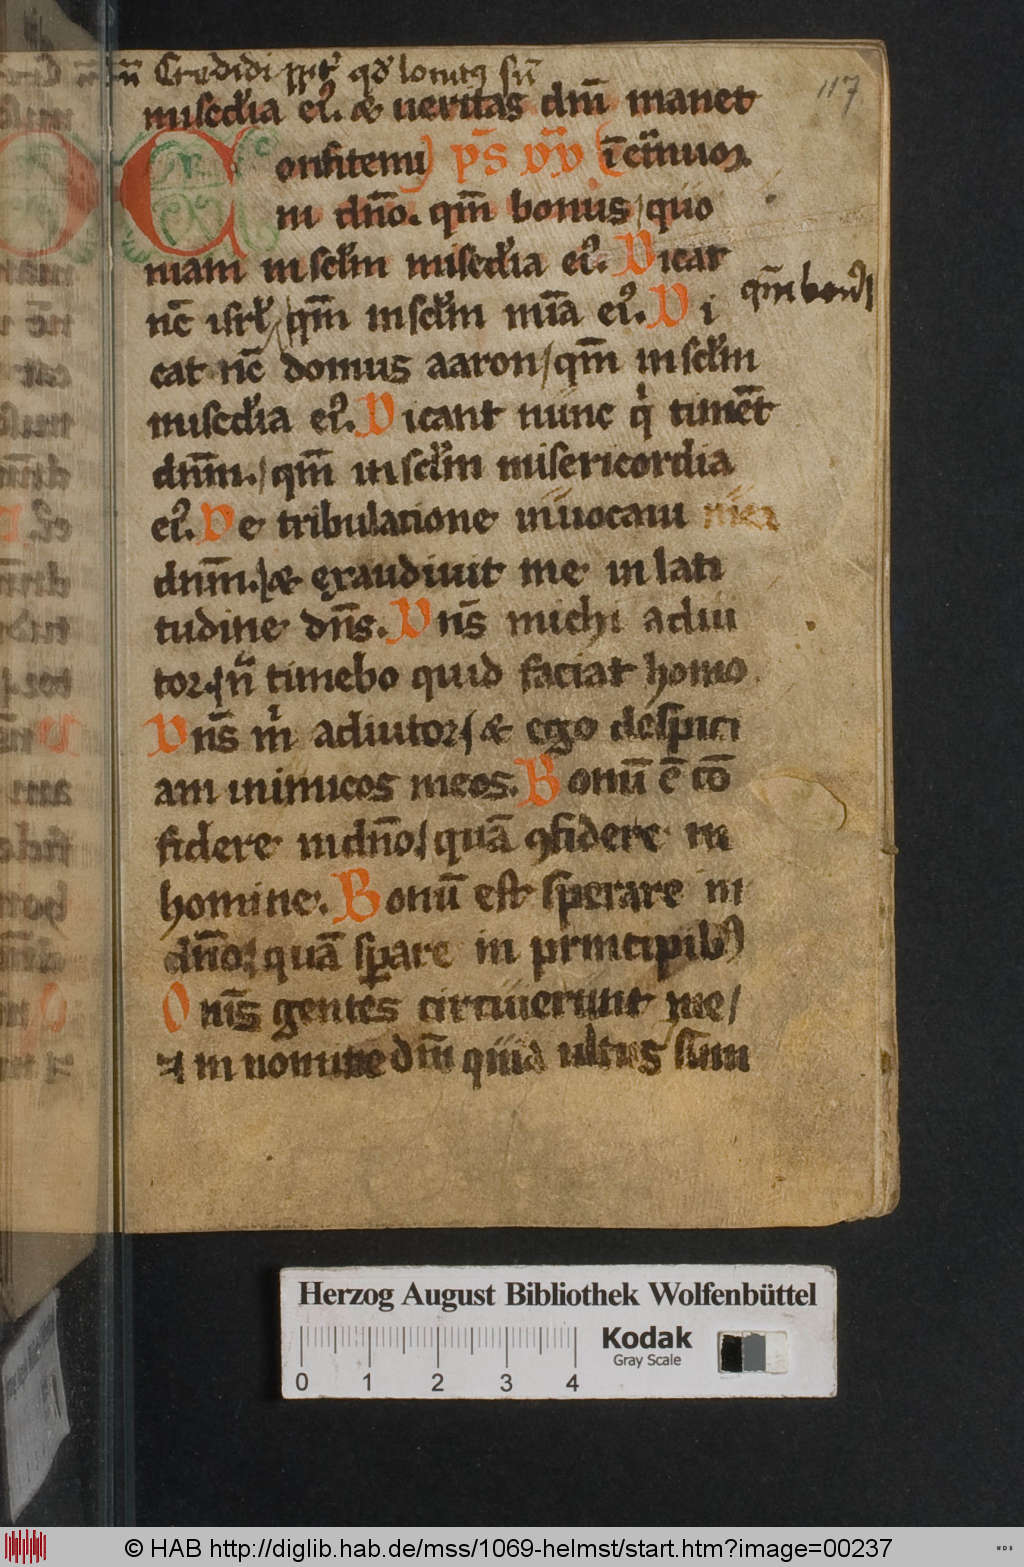 Credidi ppt̄ qd̄ locutꝰ sū
117
misedia eiꝰ. & ueritas dm̄ manet
onfitemi p̄s vv̄v ī et̄nuoꝫ.
ni dn̄o. qm̄ bonus / quo
niam in scl̄m misedia eiꝰ. Dicat
qm̄ bonꝰ
nc̄ isrl̄ / qm̄ in scl̄m mīa eiꝰ. Di
cat nc̄ domus aaron / qm̄ in scl̄m
misedia eiꝰ. Dicant nunc qͥ timēt
dnm̄. / qm̄ in scl̄m misericordia
eiꝰ. De tribulatione inuocaui
dnm̄. / & exaudiuit me in lati
tudine dn̄s. Dn̄s michi adiu
tor. / n̄ timebo quid faciat homo
Dn̄s mͥ adiutor / & ego despici
am inimicos meos. Bonū ē cō
fidere in dn̄o / quā ꝯfidere in
homine. Bonū est sperare in
dn̄o / quā sꝑare in principibꝰ
Om̄s gentes circuierunt me /
⁊ in nomine dn̄i quia ultus sum
Herzog August Bibliothek Wolfenbüttel
Kodak
Gray Scale
0 1 2 3 4
© HAB http://diglib.hab.de/mss/1069-helmst/start.htm?image=00237